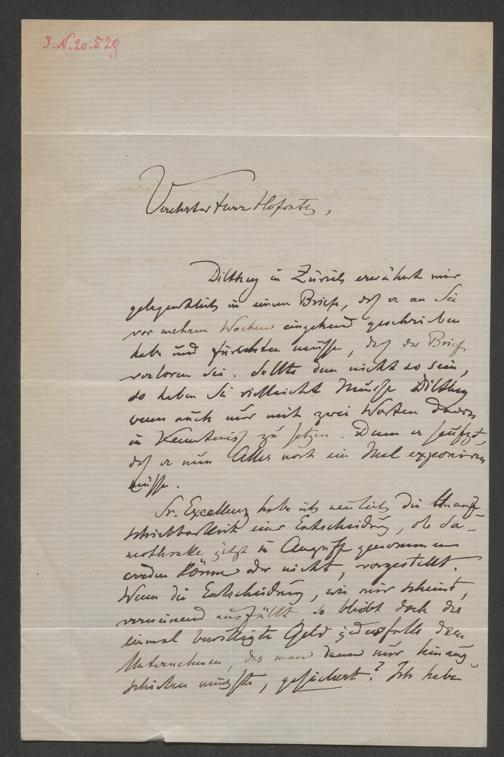 I.N. 20.529
Verehrter Herr Hofrath,
Dilthey in Zürich erwähnt mir
gelegentlich in einem Briefe, daß er an Sie
vor mehren Wochen eingehend geschrieben
habe und fürchten müsse, daß der Brief
verloren sei. Sollte dem nicht so sein,
so haben Sie vielleicht Musse Dilthey
wenn auch nur mit zwei Worten davon
in Kenntniß zu setzen. Denn er seufzt,
daß er nun Alles noch ein Mal exponiren
müsse.
Sr. Excellenz habe ich neulich die Unauf-
schiebbarkeit einer Entscheidung, ob Sa-
mothrake jetzt in Angriff genommen
werden könne oder nicht, vorgestellt.
Wenn die Entscheidung, wie mir scheint,
verneinend ausfällt so bleibt doch das
einmal bewilligte Geld jedenfalls dem
Unternehmen, das man dann nur hinaus-
schieben müsste, gesichert? Ich habe